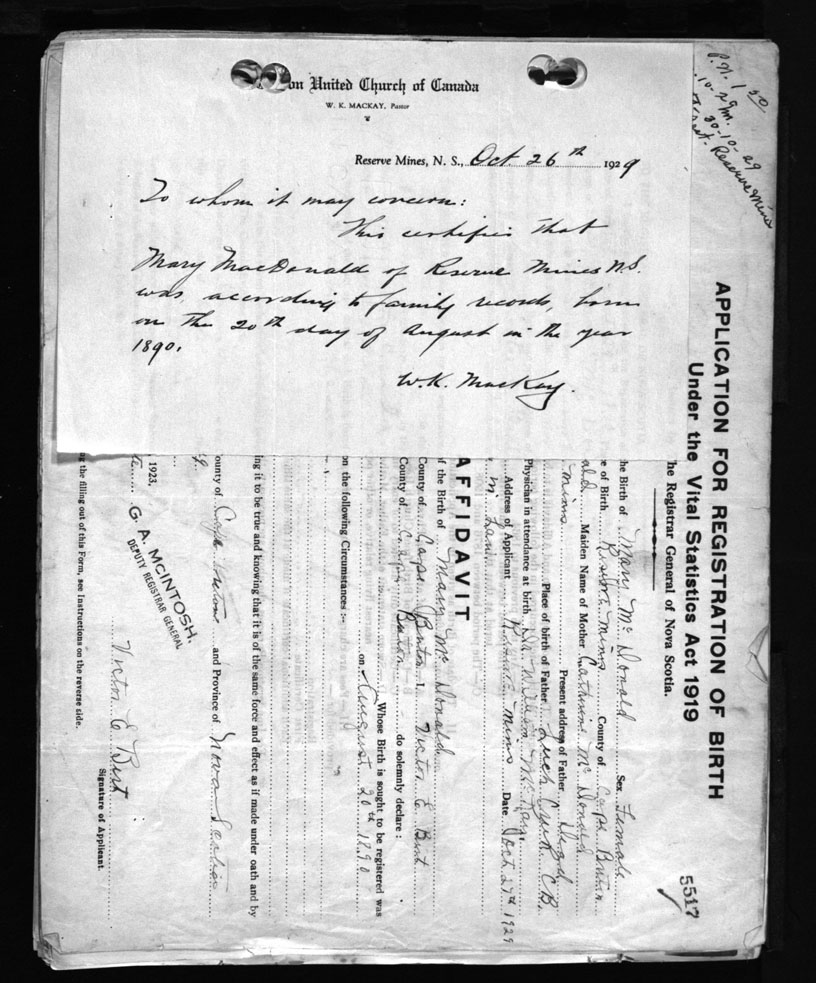 on United Church of Canada
W. K. MACKAY, Pastor
Reserve Mines, N. S., Oct. 26th 1929
To whom it may concern:
This certifies that
Mary MacDonald of Reserve Mines N.S.
was, according to family records, born
on the 20th day of August in the year
1890.
W. K. MacKay.
10-29
30-10-29
Reserve Mines
APPLICATION FOR REGISTRATION OF BIRTH
Under the Vital Statistics Act 1919
he Registrar General of Nova Scotia.
5517
he Birth of Mary McDonald Sex Female
e of Birth Reserve Mines County of Cape Breton
ald Maiden Name of Mother Catherine McDonald
Mines Present address of Father Dead
Place of birth of Father C.B.
Physician in attendance at birth Dr. William McKay
Address of Applicant Reserve Mines Date Oct 27th 1929
AFFIDAVIT
f the Birth of Mary McDonald
County of Cape Breton I, Victor E Bust
County of Cape Breton do solemnly declare :
Whose Birth is sought to be registered was
on August 20th 1890
on the following Circumstances :-
ing it to be true and knowing that it is of the same force and effect as if made under oath and by
ounty of Cape Breton and Province of Nova Scotia
1923.
G. A. MCINTOSH,
DEPUTY REGISTRAR GENERAL
Victor E Bust
Signature of Applicant.
ng the filling out of this Form, see Instructions on the reverse side.